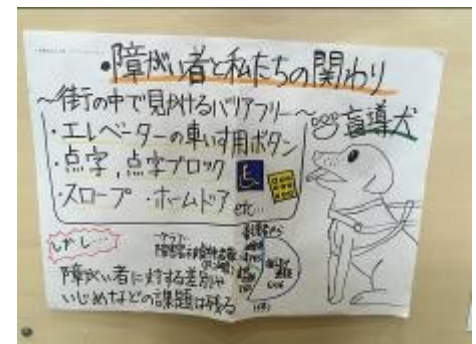 ・障がい者と私たちの関わり
～街の中で見かけるバリアフリー～
・エレベーターの車いす用ボタン
・点字、点字ブロック
・スロープ ・ホームドア etc…
盲導犬
しかし…
障がい者に対する差別や
いじめなどの課題は残る